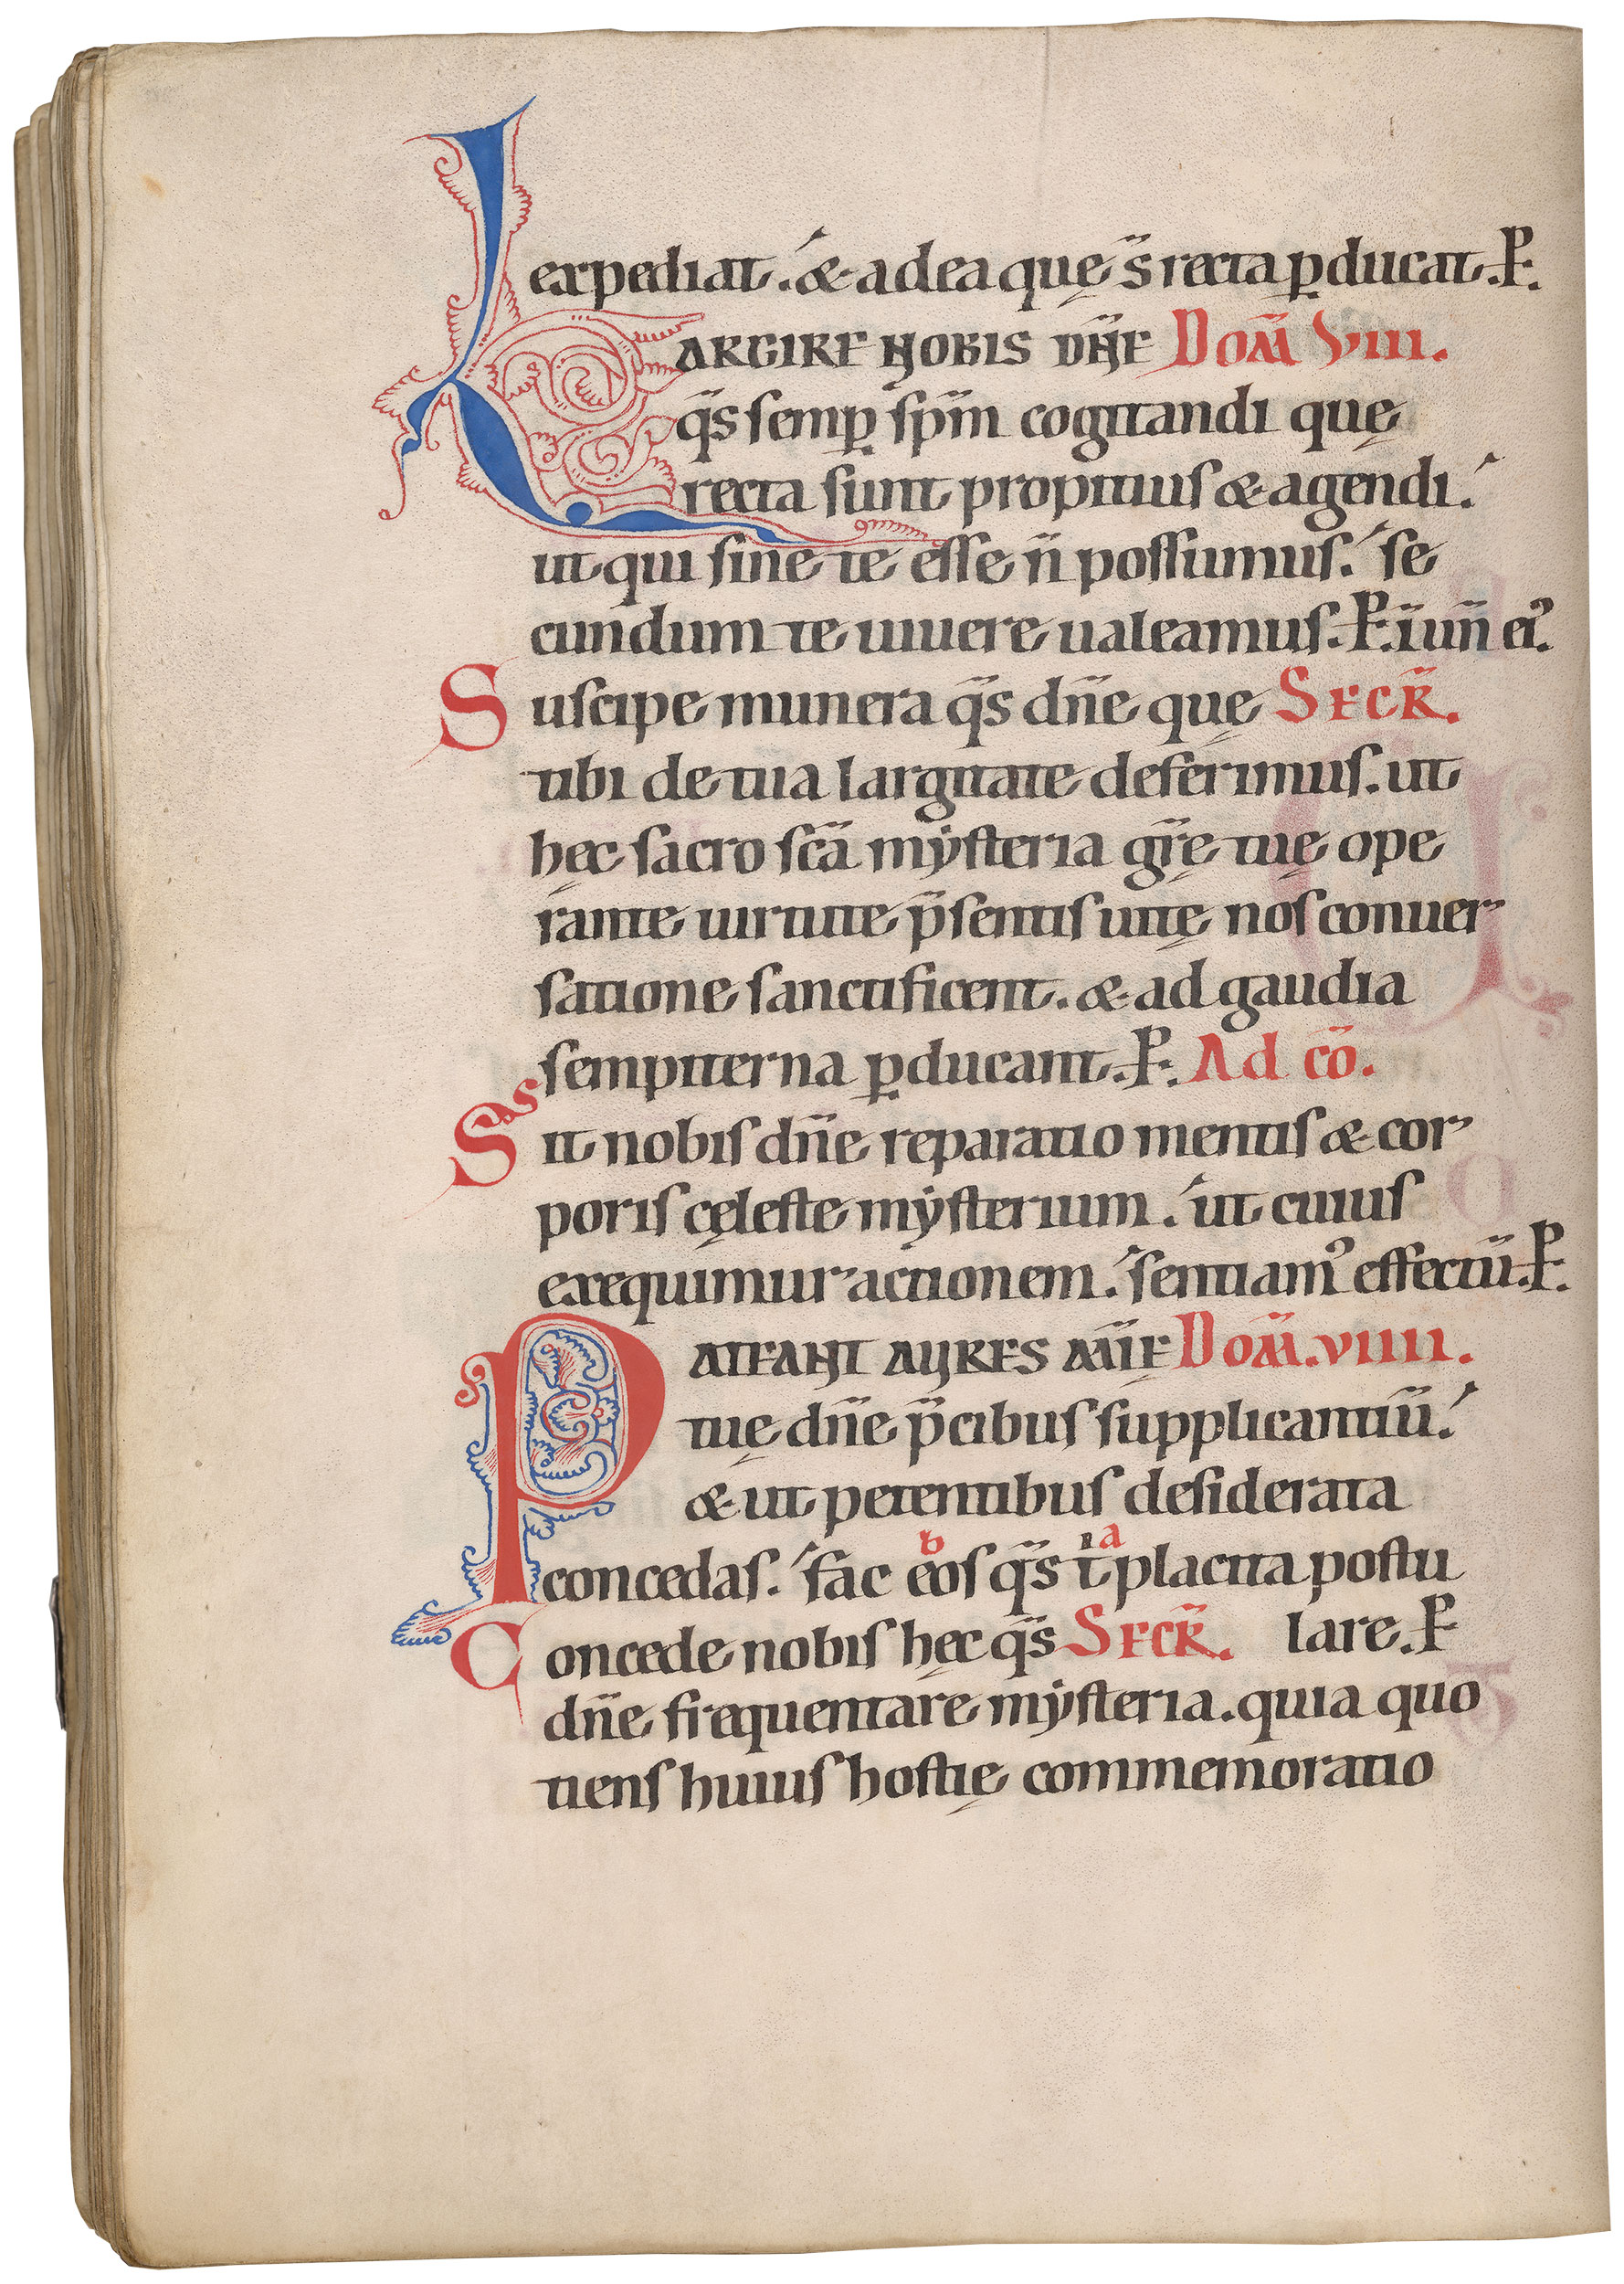 expediat. & ad ea quę s̄ recta ꝑducat. P̶.
LARGIRE NOBIS DN̄E DOM̄ VIII.
q̄s semꝑ sp̄m cogitandi quę
recta sunt propitius & agendi.
ut qui sine te esse n̄ possumus. se
cundum te uiuere ualeamus. P̶. ī un̄ eiꝰ.
Suscipe munera q̄s dn̄e quę SECR̄.
tibi de tua largitate deferimus. ut
hęc sacro sc̄a mẏsteria gr̄ę tuę ope
rante uirtute p̄sentis uitę nos conuer
satione sanctificent. & ad gaudia
sempiterna ꝑducant. P̶. Ad cō.
Sit nobis dn̄e reparatio mentis & cor
poris cęleste mẏsterium. ut cuius
exequimur actionem. sentiamꝰ effectū. P̶.
PATEANT AURES MIE DOM̄. VIIII.
tuę dn̄e p̄cibus supplicantiū.
& ut petentibus desiderata
b a
concedas. fac eos q̄s tⁱ placita postu
Concede nobis hęc q̄s SECR̄. lare. P̶
dn̄e frequentare mẏsteria. quia quo
tiens huius hostię commemoratio